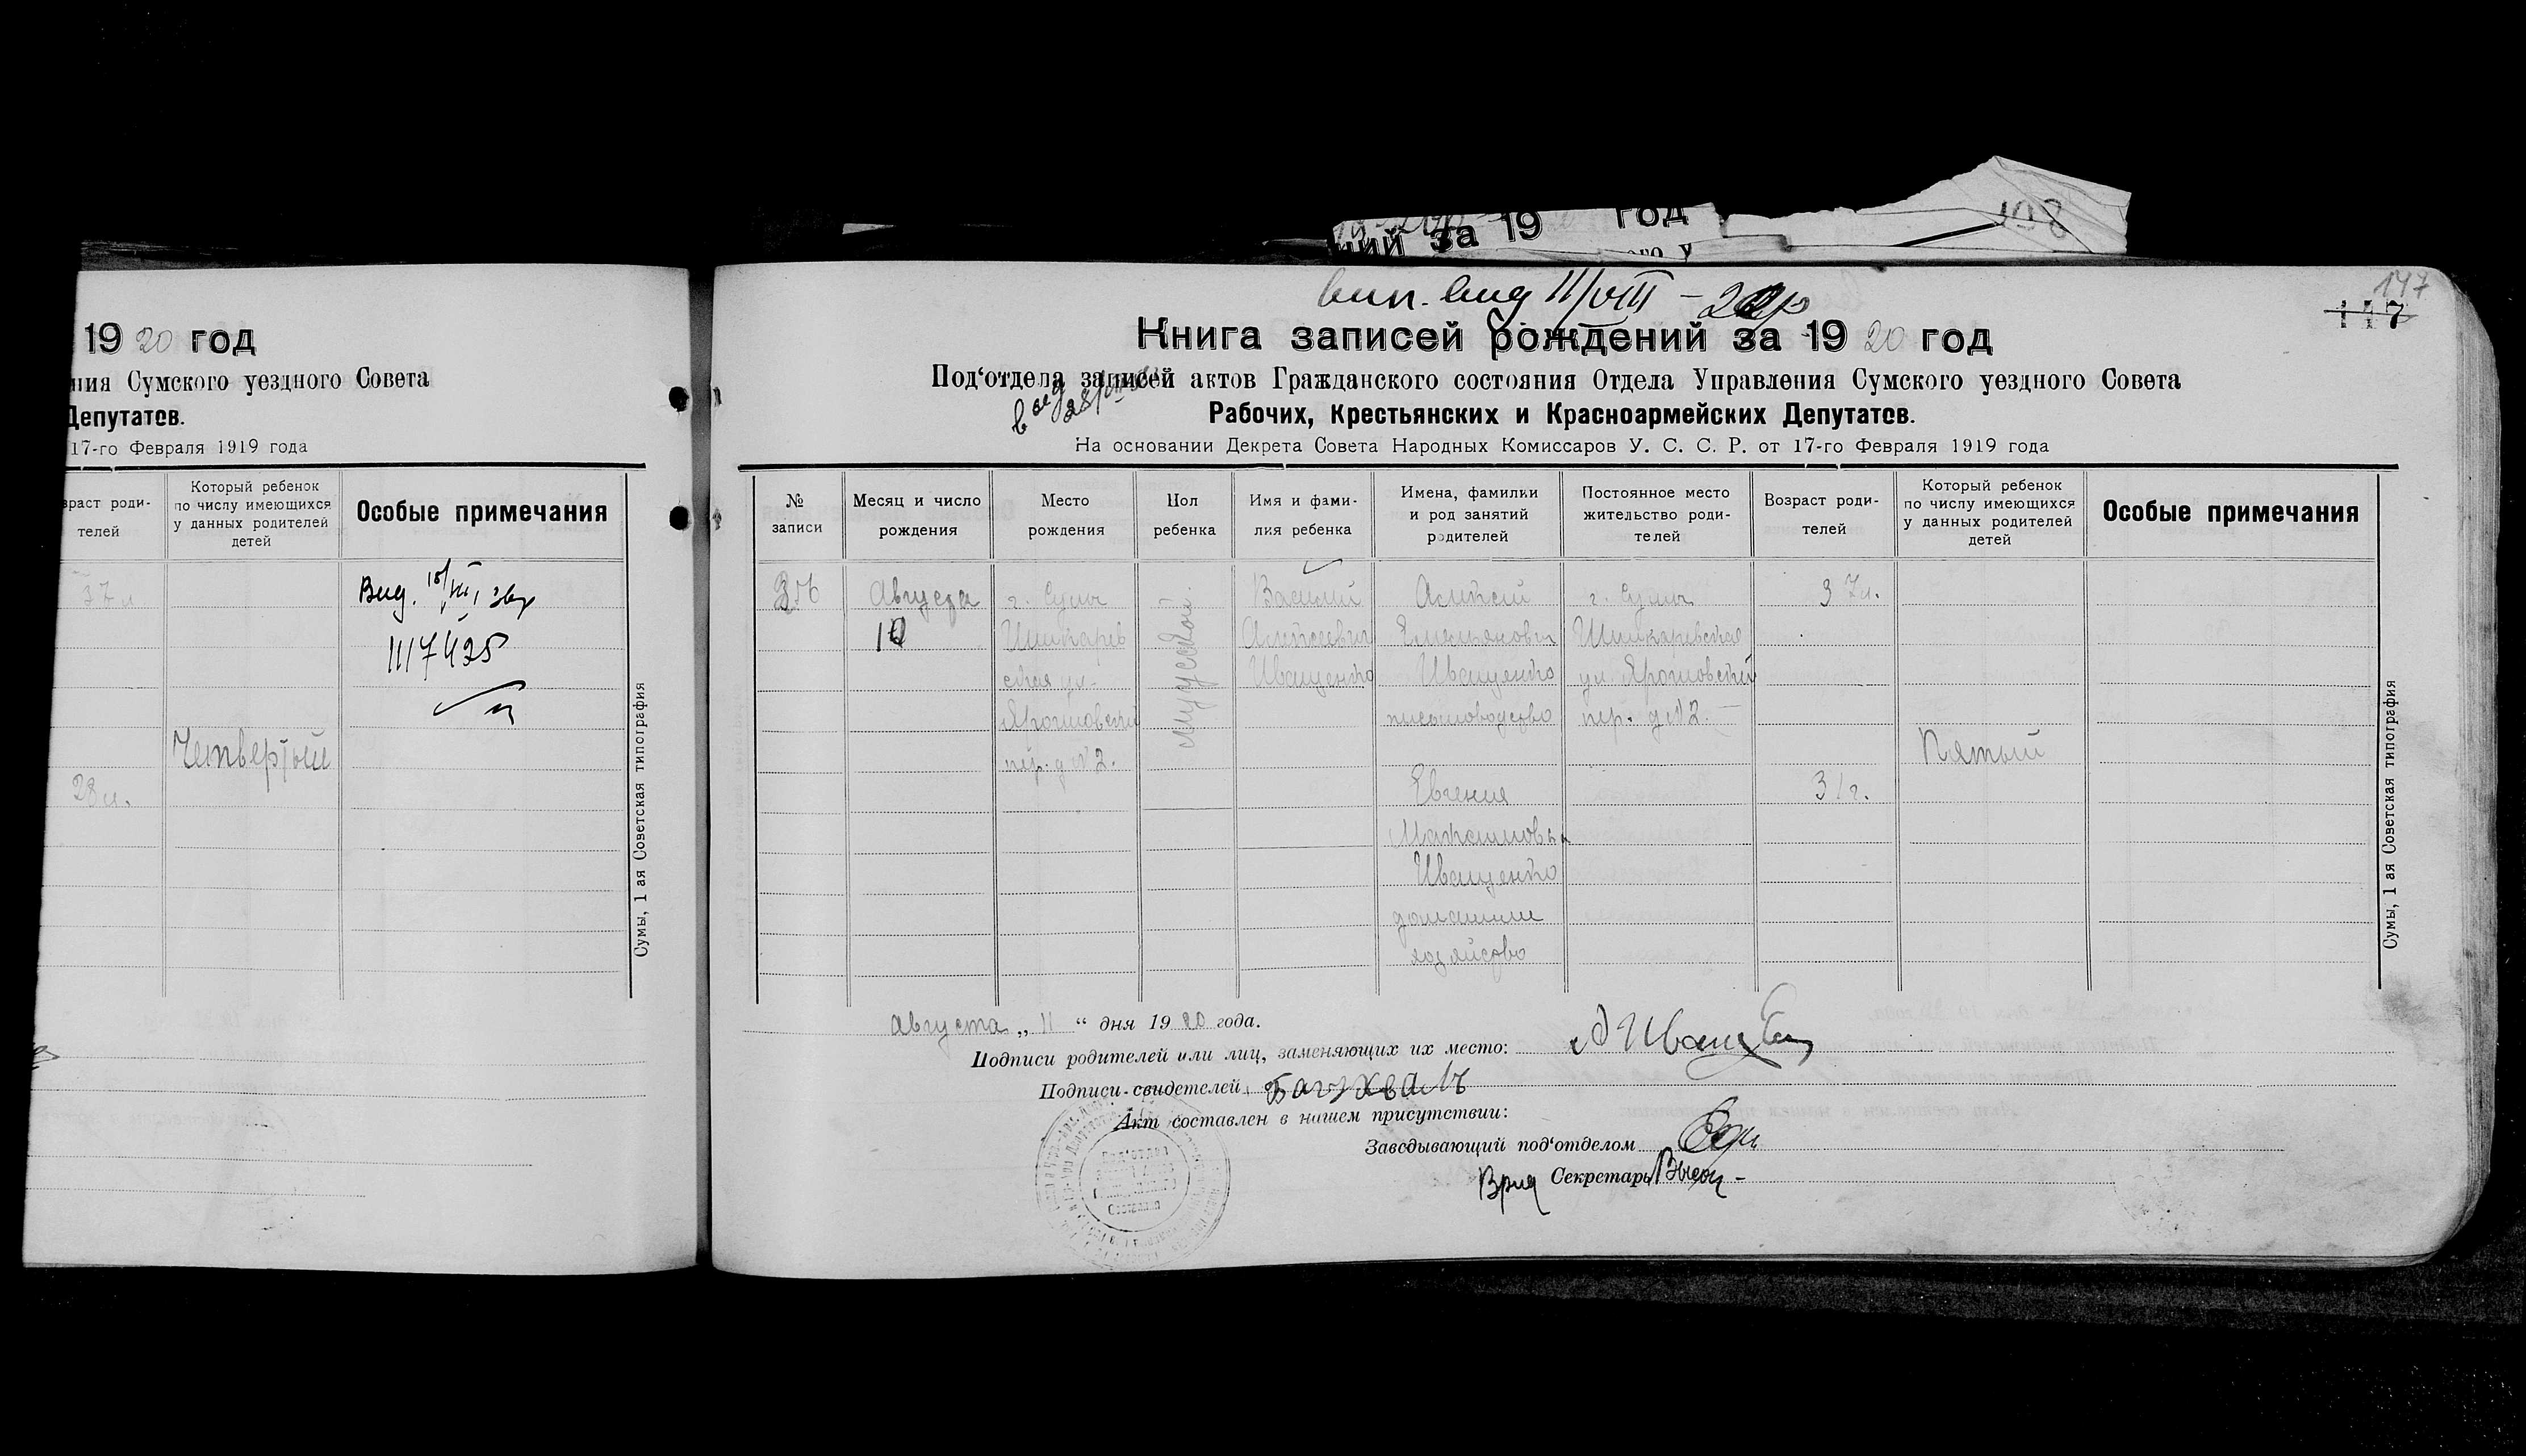 ний за 19 год
198
19 20 год
ния Сумского уездного Совета
Депутатов.
17-го Февраля 1919 года
раст роди-
телей
Который ребенок
по числу имеющихся
у данных родителей
детей
Особые примечания
37 л
Вид.
1117425
Четвертый
28 л.
Сумы, 1 ая Советская типография
147
117
вып. вид 11/VIII - 20р
Книга записей рождений за 19 20 год
Под'отдела записей актов Гражданского состояния Отдела Управления Сумского уездного Совета
Рабочих, Крестьянских и Красноармейских Депутатов.
На основании Декрета Совета Народных Комиссаров У. С. С. Р. от 17-го Февраля 1919 года
№
записи
Месяц и число
рождения
Место
рождения
Пол
ребенка
Имя и фами-
лия ребенка
Имена, фамилии
и род занятий
родителей
Постоянное место
жительство роди-
телей
Возраст роди-
телей
Который ребенок
по числу имеющихся
у данных родителей
детей
Особые примечания
356
Августа
10
г. Сумы
Шишкарев
ская ул.
Ярошовский
пер. д №2.
Мужской
Василий
Алексеевич
Иващенко
Алексей
Емельянович
Иващенко
письмоводство
Евгения
Максимовна
Иващенко
домашнее
хозяйство
г. Сумы
Шишкаревская
ул. Ярошовский
пер. д №2.
37 л.
31 г.
Пятый
Сумы, 1 ая Советская типография
августа „ 11 “ дня 19 20 года.
Подписи родителей или лиц, заменяющих их место: А Иващенко
Подписи свидетелей
Акт составлен в нашем присутствии:
Заведывающий под'отделом
Врид Секретарь
Под'отдел
Состояния